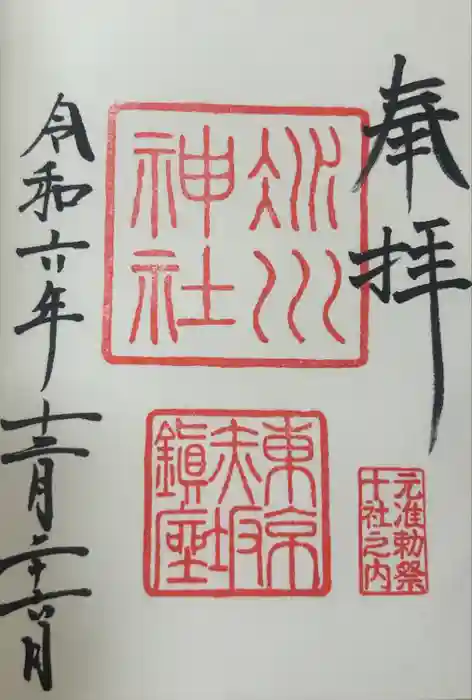 奉拝
氷川
神社
東京
赤坂
鎭座
元准勅祭
十社之内
令和六年十二月二十六日